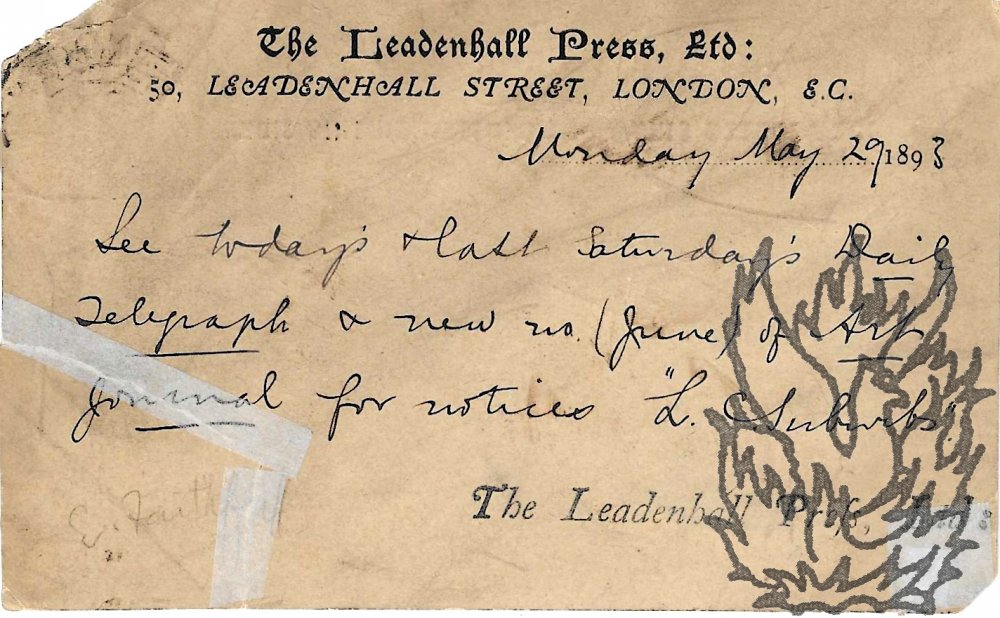 The Leadenhall Press, Ltd:
50, LEADENHALL STREET, LONDON, E.C.
Monday May 29 1893
See today's & last Saturday's Daily
Telegraph & new no. (June) of Art
Journal for notices "L. & Suburbs".
The Leadenhall Press, Ltd: